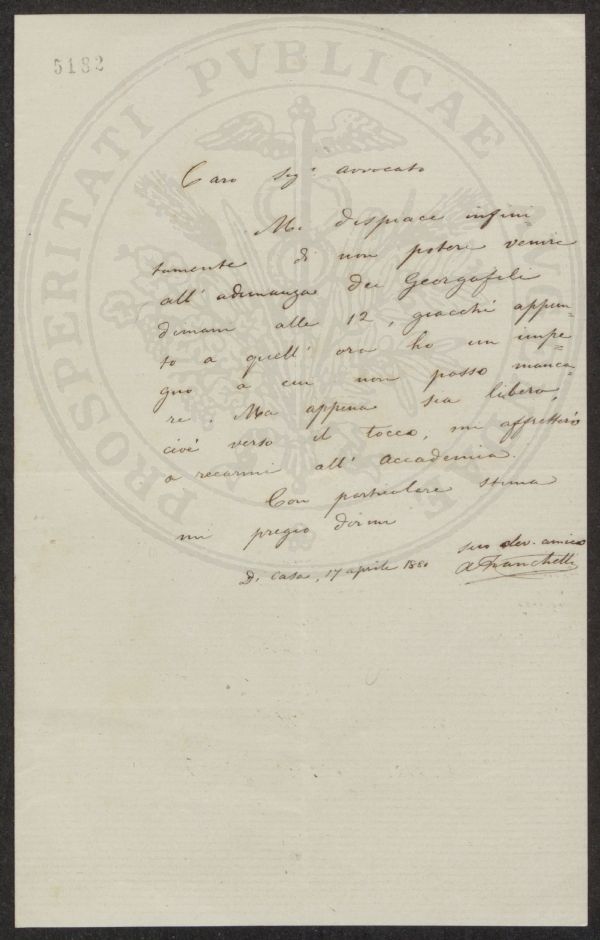 5182
PROSPERITATI PVBLICAE AVG
Caro Sig.r Avvocato
Mi dispiace infini
tamente di non potere venire
all' adunanza dei Georgofili
domani alle 12, giacchè appun-
to a quell' ora ho un impe-
gno a cui non posso manca-
re. Ma appena sia libero,
cioè verso il tocco, mi affretterò
a recarmi all' Accademia.
Con particolare stima
mi pregio dirmi
suo dev. amico
Di casa, 17 aprile 1880
AFranchetti